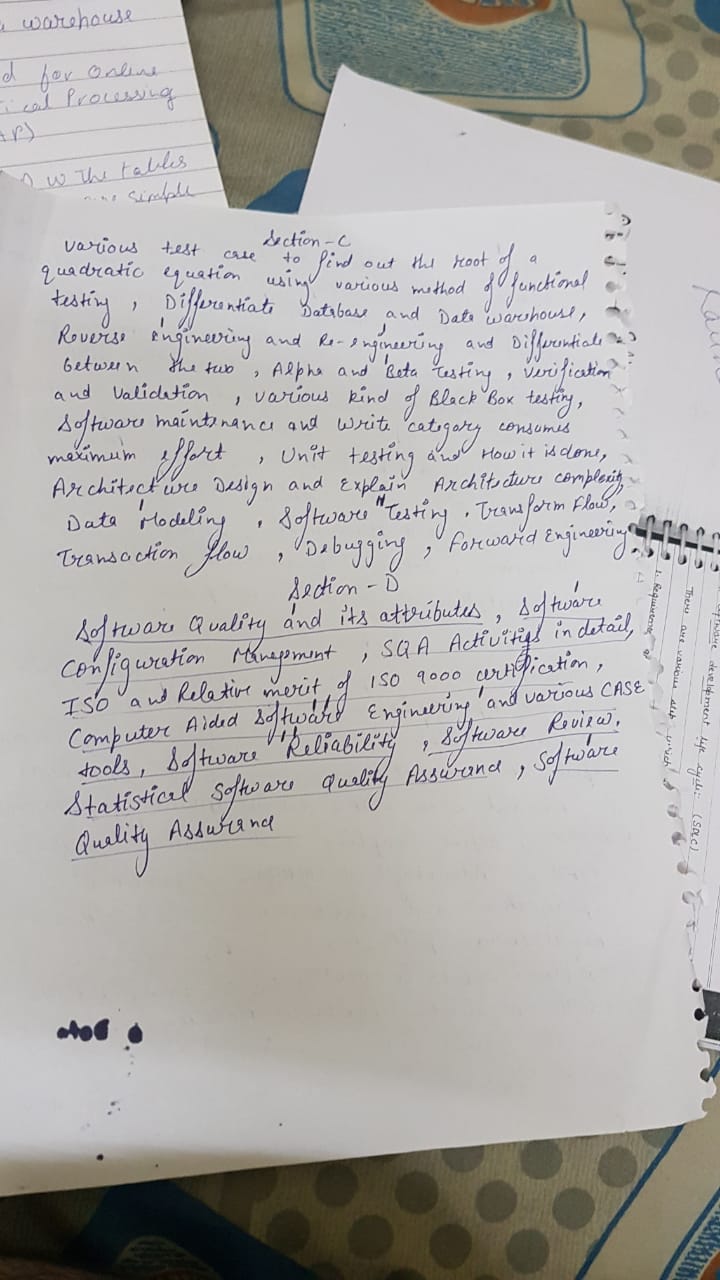 warehouse
d for online
ical Processing
AP)
w The tables
simple
Section-C
various test case to find out the root of a
quadratic equation using various method of functional
testing, Differentiate Database and Data warehouse,
Reverse engineering and Re-engineering and Differentiate
between the two, Alpha and Beta Testing, Verification
and Validation, various kind of Black Box testing,
Software maintenance and write category consumes
maximum effort, Unit testing and How it is done,
Architecture Design and Explain Architecture complexity,
Data Modeling, Software Testing, Transform Flow,
Transaction flow, Debugging, Forward Engineering
Section-D
Software Quality and its attributes, Software
Configuration Management, SQA Activities in detail,
ISO and Relative merit of ISO 9000 certification,
Computer Aided Software Engineering and various CASE
tools, Software Reliability, Software Review,
Statistical Software Quality Assurance, Software
Quality Assurance
software development life cycle (SDLC)
There are various
1. Requirements